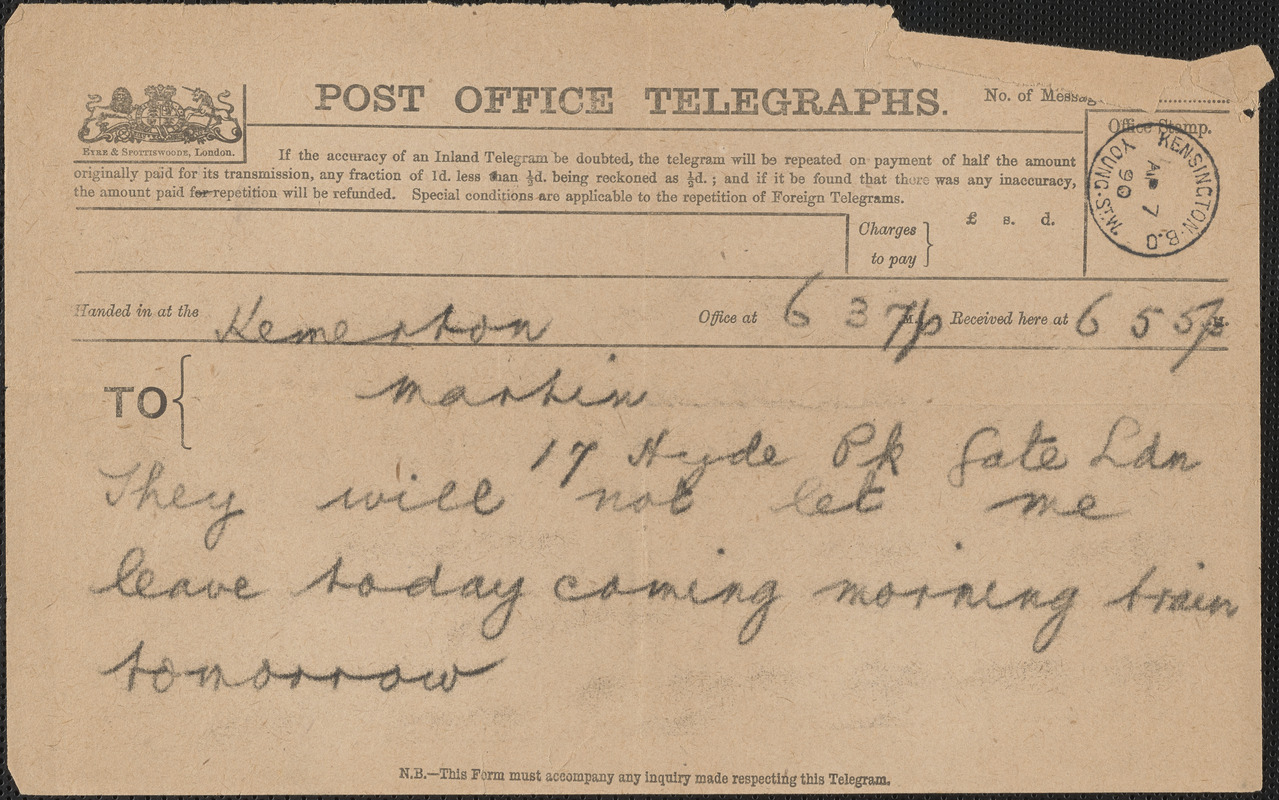 POST OFFICE TELEGRAPHS.
No. of Messag
EYRE & SPOTTISWOODE, LONDON.
If the accuracy of an Inland Telegram be doubted, the telegram will be repeated on payment of half the amount
originally paid for its transmission, any fraction of 1d. less than ½d. being reckoned as ½d.; and if it be found that there was any inaccuracy,
the amount paid for repetition will be refunded. Special conditions are applicable to the repetition of Foreign Telegrams.
Office Stamp.
KENSINGTON·B.O
YOUNG·M.ST.W.
AP 7
90
Charges
to pay
£ s. d.
Handed in at the Kemerton Office at 6 37p M. Received here at 6 55p M.
TO
Martin
17 Hyde Pk Gate Ldn
They will not let me
leave today coming morning train
tomorrow
N.B.—This Form must accompany any inquiry made respecting this Telegram.